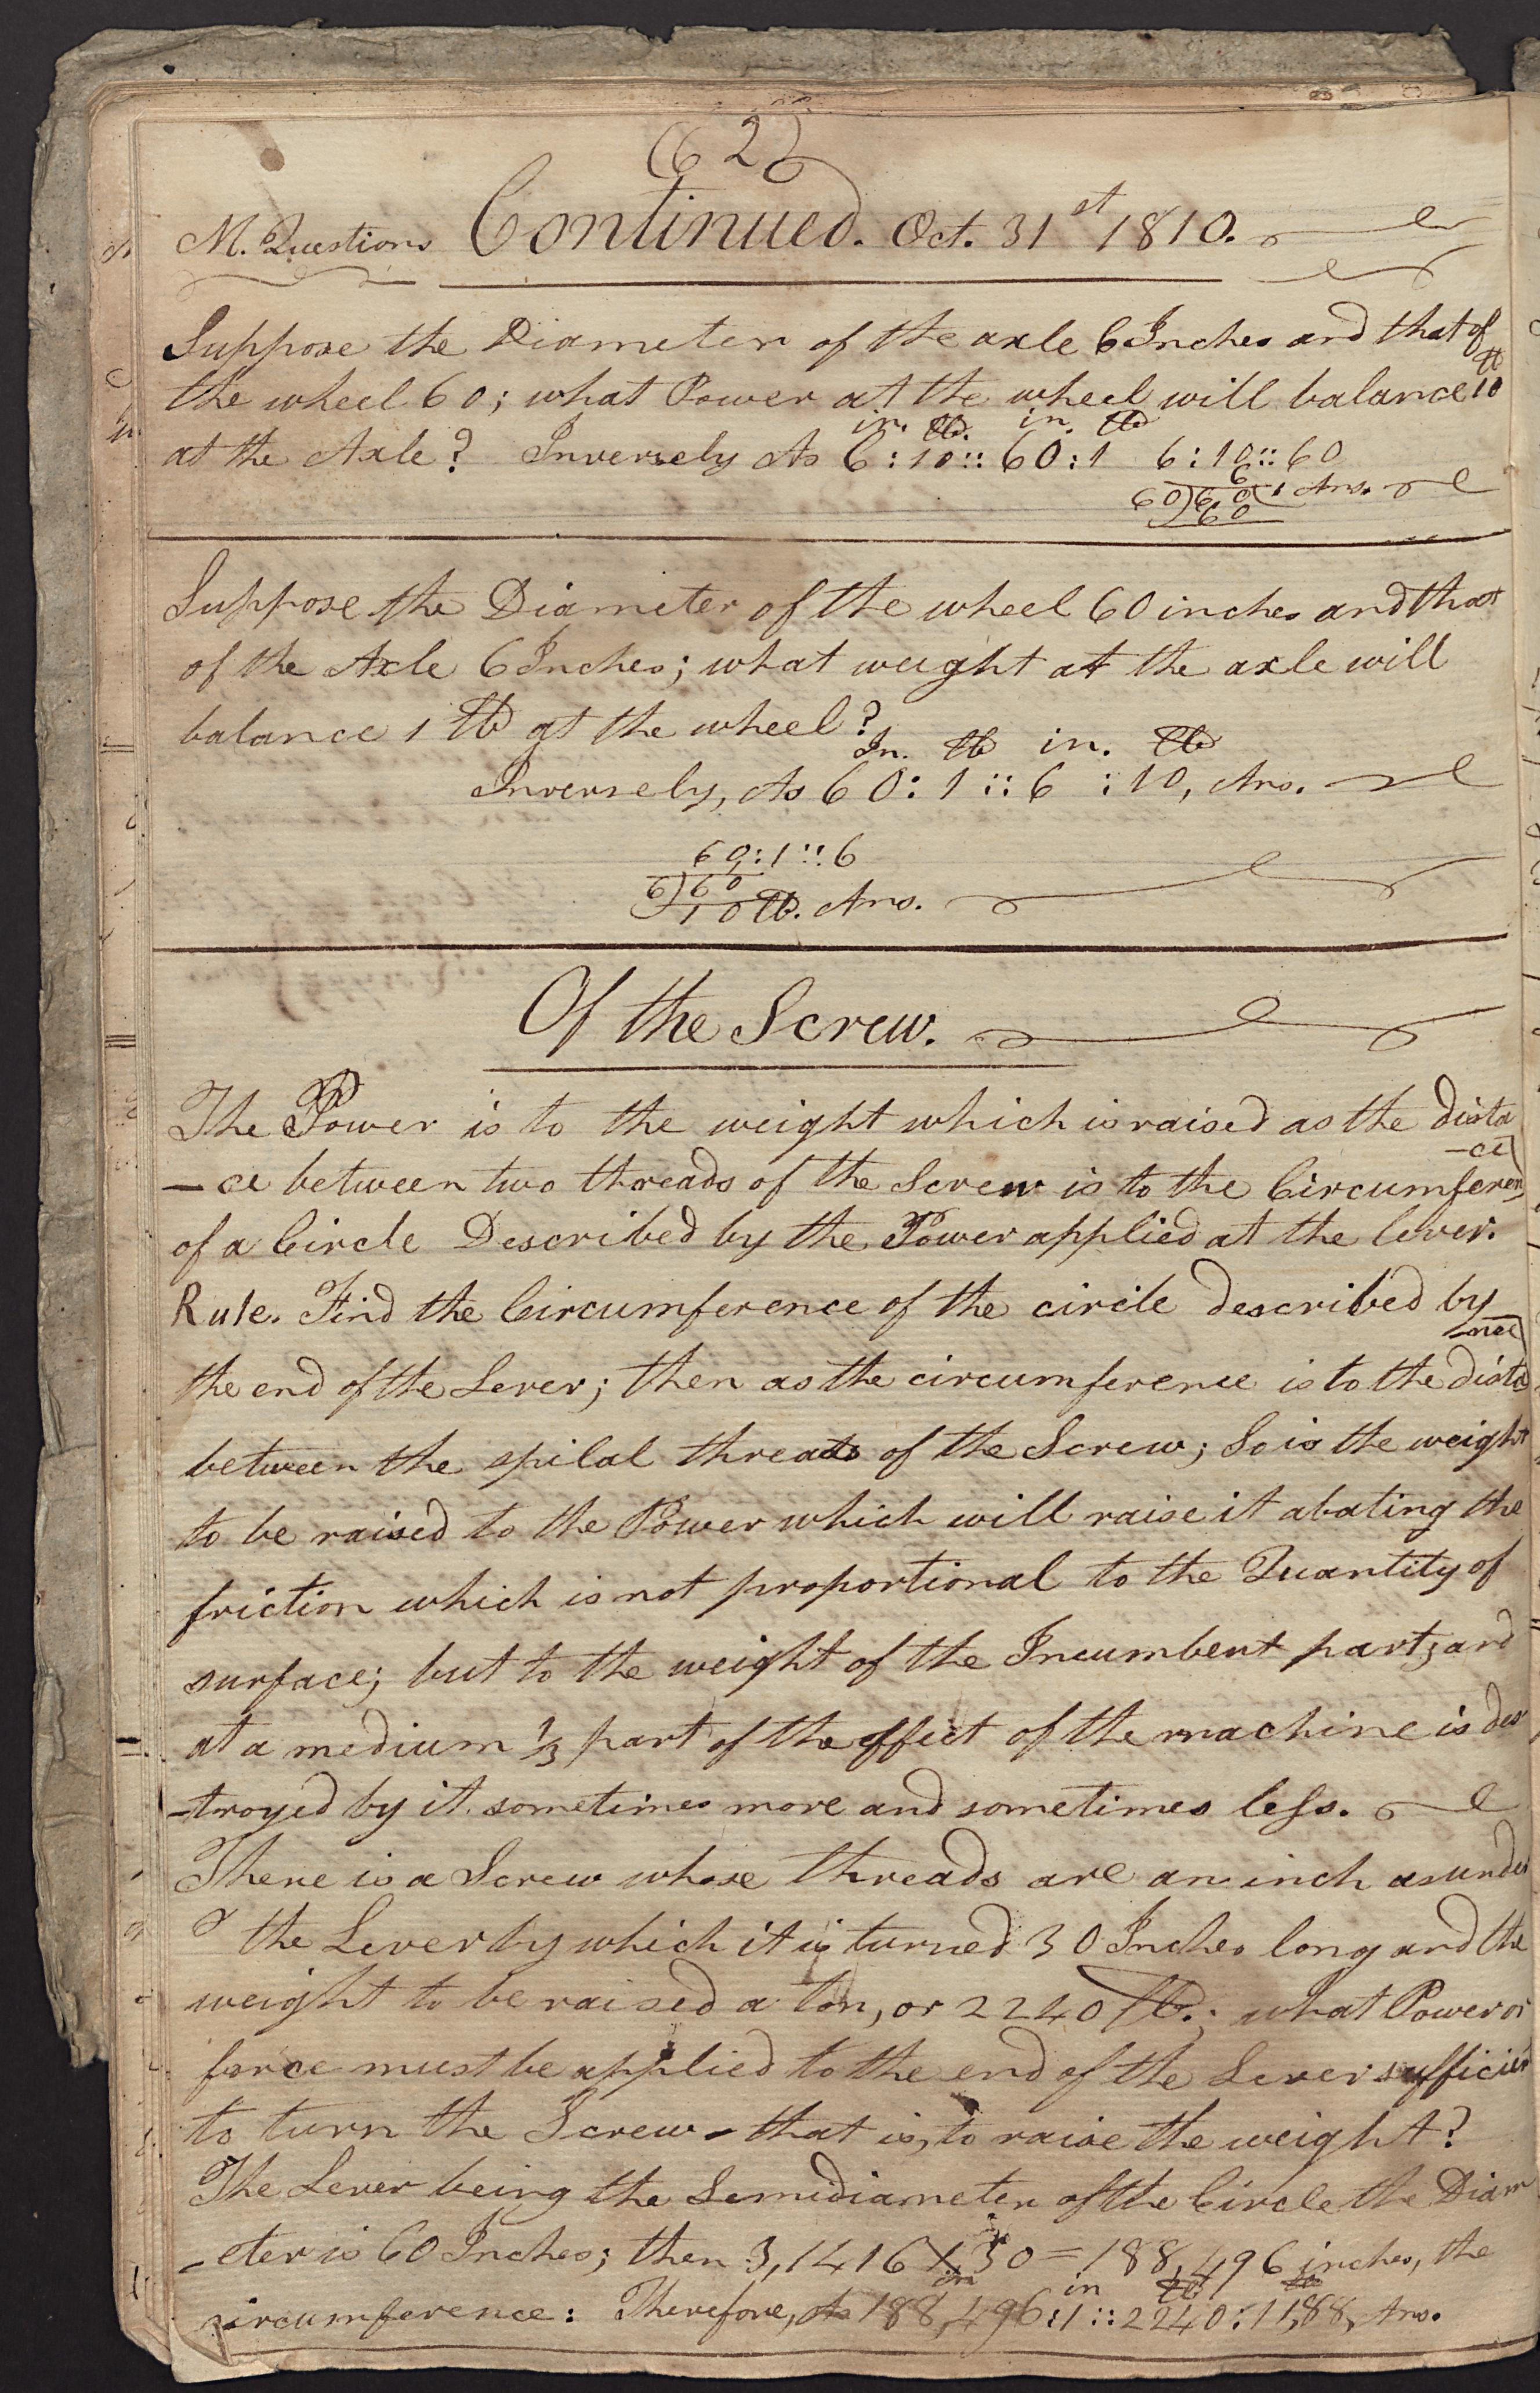 (62)
M. Questions Continued. Oct. 31st 1810.
Suppose the Diameter of the axle 6 Inches and that of
the wheel 60; what Power at the wheel will balance 10 lb
at the Axle? Inversely As 6 in. : 10 lb. :: 60 in. : 1 lb 6 : 10 :: 60
6
60)60(1 Ans.
60
Suppose the Diameter of the wheel 60 inches and that
of the Axle 6 Inches; what weight at the axle will
balance 1 lb at the wheel?
In. lb in. lb
Inversely, As 60 : 1 :: 6 : 10, Ans.
60 : 1 :: 6
6)60
10 lb. Ans.
Of the Screw.
The Power is to the weight which is raised as the dista
-ce between two threads of the Screw is to the Circumferen
-ce
of a Circle Described by the Power applied at the lever.
Rule. Find the Circumference of the circle described by
the end of the Lever; then as the circumference is to the dista
-nce
between the spilal threads of the Screw; So is the weight
to be raised to the Power which will raise it abating the
friction which is not proportional to the Quantity of
surface; but to the weight of the Incumbent part; and
at a medium 1/3 part of the effect of the machine is des
-troyed by it. sometimes more and sometimes less.
There is a Screw whose threads are an inch asunder
the Lever by which it is turned 30 Inches long and the
weight to be raised a ton, or 2240 lb.; what Power or
force must be applied to the end of the Lever sufficient
to turn the Screw - that is, to raise the weight?
The Lever being the Semidiameter of the Circle the Diam
-eter is 60 Inches; then 3,1416 X 30 = 188,496 inches, the
in in lb lb
circumference: Therefore, As 188,496 : 1 :: 2240 : 11,88, Ans.